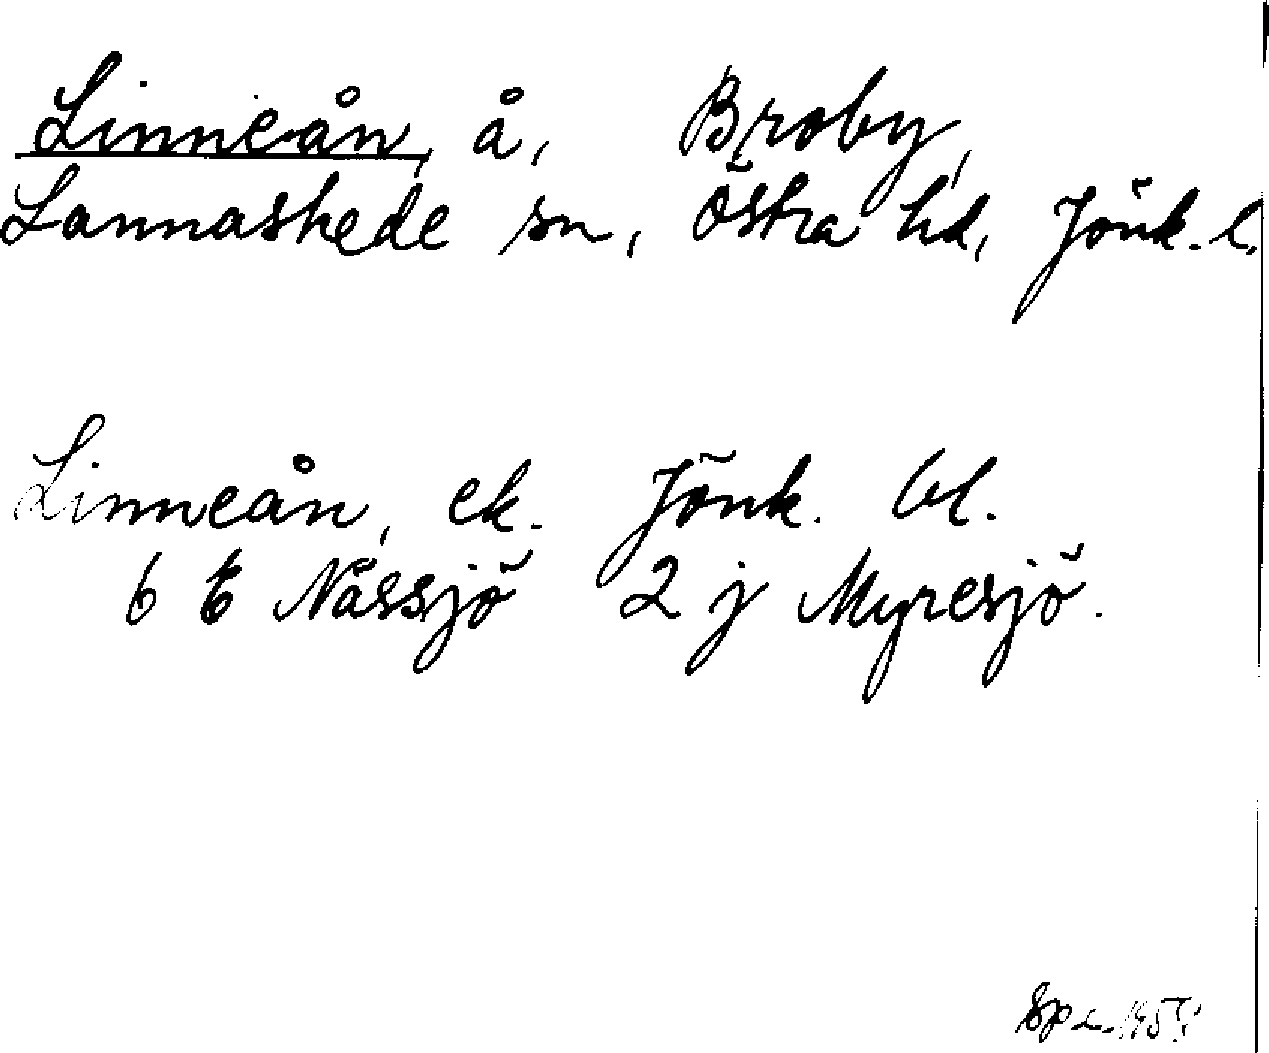 Linneån, å, Broby,
Lannaskede sn, Östra hd, Jönk. l.
Linneån, ek. Jönk. bl.
6 E Nässjö 2 j Myresjö.